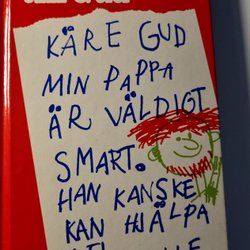 KÄRE GUD
MIN PAPPA
ÄR VÄLDIGT
SMART.
HAN KANSKE
KAN HJÄLPA